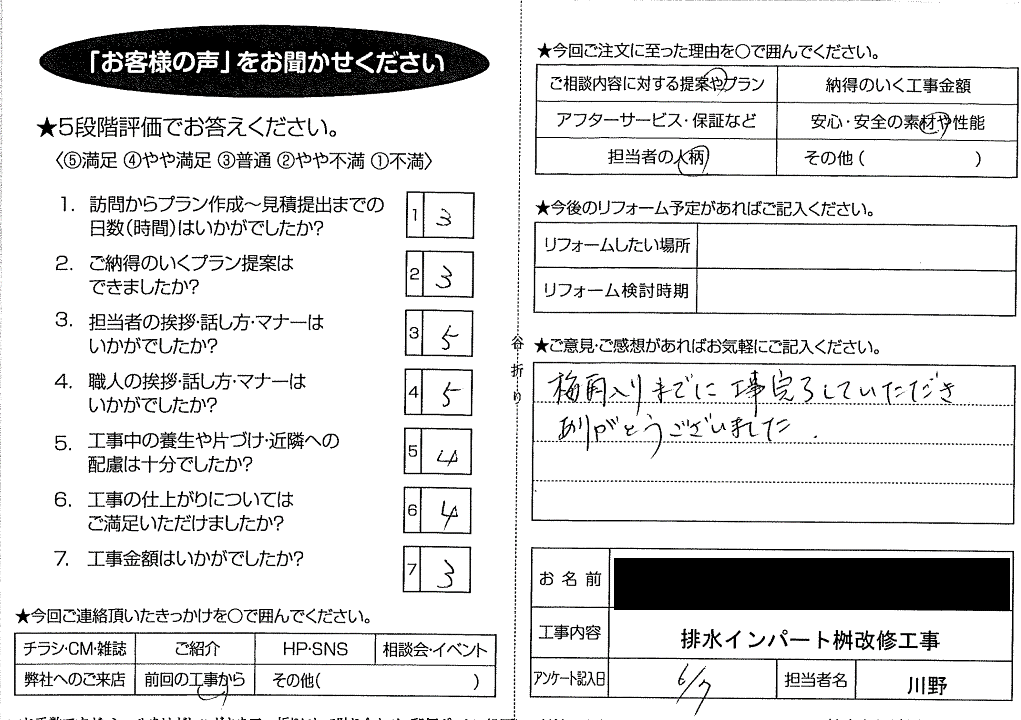 「お客様の声」をお聞かせください
★5段階評価でお答えください。
〈⑤満足 ④やや満足 ③普通 ②やや不満 ①不満〉
1. 訪問からプラン作成～見積提出までの
日数(時間)はいかがでしたか?
1 3
2. ご納得のいくプラン提案は
できましたか?
2 3
3. 担当者の挨拶・話し方・マナーは
いかがでしたか?
3 5
4. 職人の挨拶・話し方・マナーは
いかがでしたか?
4 5
5. 工事中の養生や片づけ・近隣への
配慮は十分でしたか?
5 4
6. 工事の仕上がりについては
ご満足いただけましたか?
6 4
7. 工事金額はいかがでしたか?
7 3
★今回ご連絡頂いたきっかけを○で囲んでください。
チラシ・CM・雑誌 ご紹介 HP・SNS 相談会・イベント
弊社へのご来店 前回の工事から その他( )
谷折り
★今回ご注文に至った理由を○で囲んでください。
ご相談内容に対する提案やプラン 納得のいく工事金額
アフターサービス・保証など 安心・安全の素材や性能
担当者の人柄 その他( )
★今後のリフォーム予定があればご記入ください。
リフォームしたい場所
リフォーム検討時期
★ご意見・ご感想があればお気軽にご記入ください。
梅雨入りまでに工事完了していただき
ありがとうございました.
お名前
工事内容 排水インパート桝改修工事
アンケート記入日 6/7 担当者名 川野